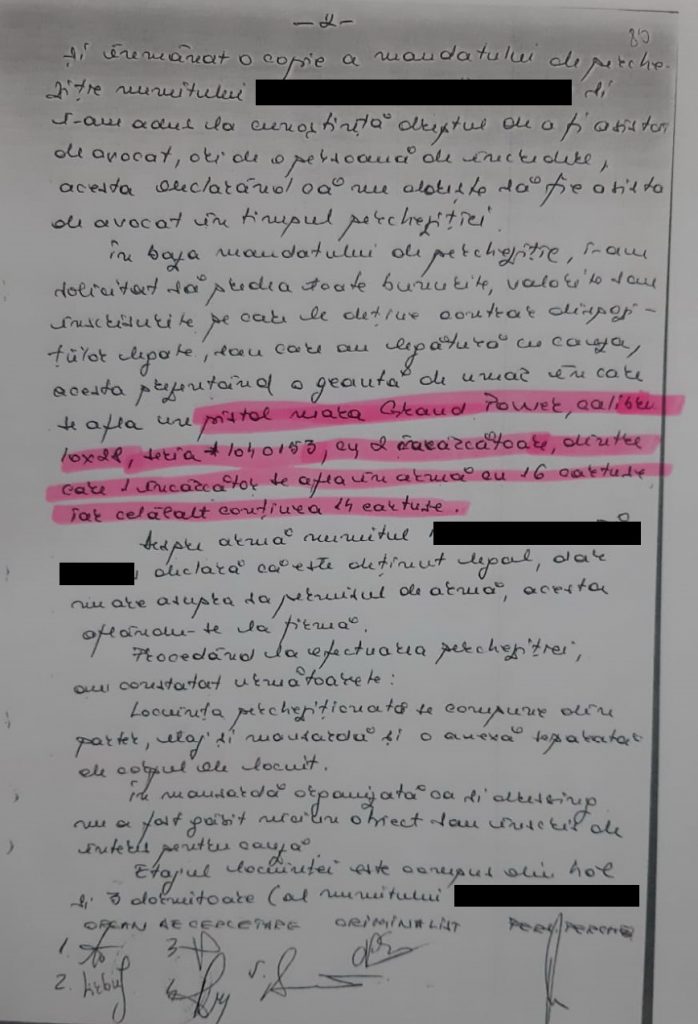 -2-
89
și înmânat o copie a mandatului de perche-
ziție numitului
și
i-am adus la cunoștință dreptul de a fi asistat
de avocat, ori de o persoană de încredere,
acesta declarând că nu dorește să fie asista
de avocat în timpul percheziției.
În baza mandatului de percheziție, i-am
solicitat să predea toate bunurile, valorile sau
înscrisurile pe care le deține contrar dispozi-
țiilor legale, sau care au legătură cu cauza,
acesta prezentând o geantă de umăr în care
se afla un pistol marca Grand Power, calibru
10x22, seria * 1040153, cu 2 încărcătoare, dintre
care 1 încărcător se afla în armă cu 16 cartușe
iar celălalt conținea 14 cartușe.
Despre armă numitul
declară că este deținut legal, dar
nu are asupra sa permisul de armă, acesta
aflându-se la firmă.
Procedând la efectuarea percheziției,
am constatat următoarele:
Locuința percheziționată se compune din
parter, etaj și mansardă și o anexă separată
de corpul de locuit.
În mansardă organizată ca și dressing
nu a fost găsit niciun obiect sau înscris de
interes pentru cauză.
Etajul locuinței este compus din hol
și 3 dormitoare (al numitului
ORGAN DE CERCETARE CRIMINALIST PERS PERCHEZ
1. 3.
2. 4. 5.